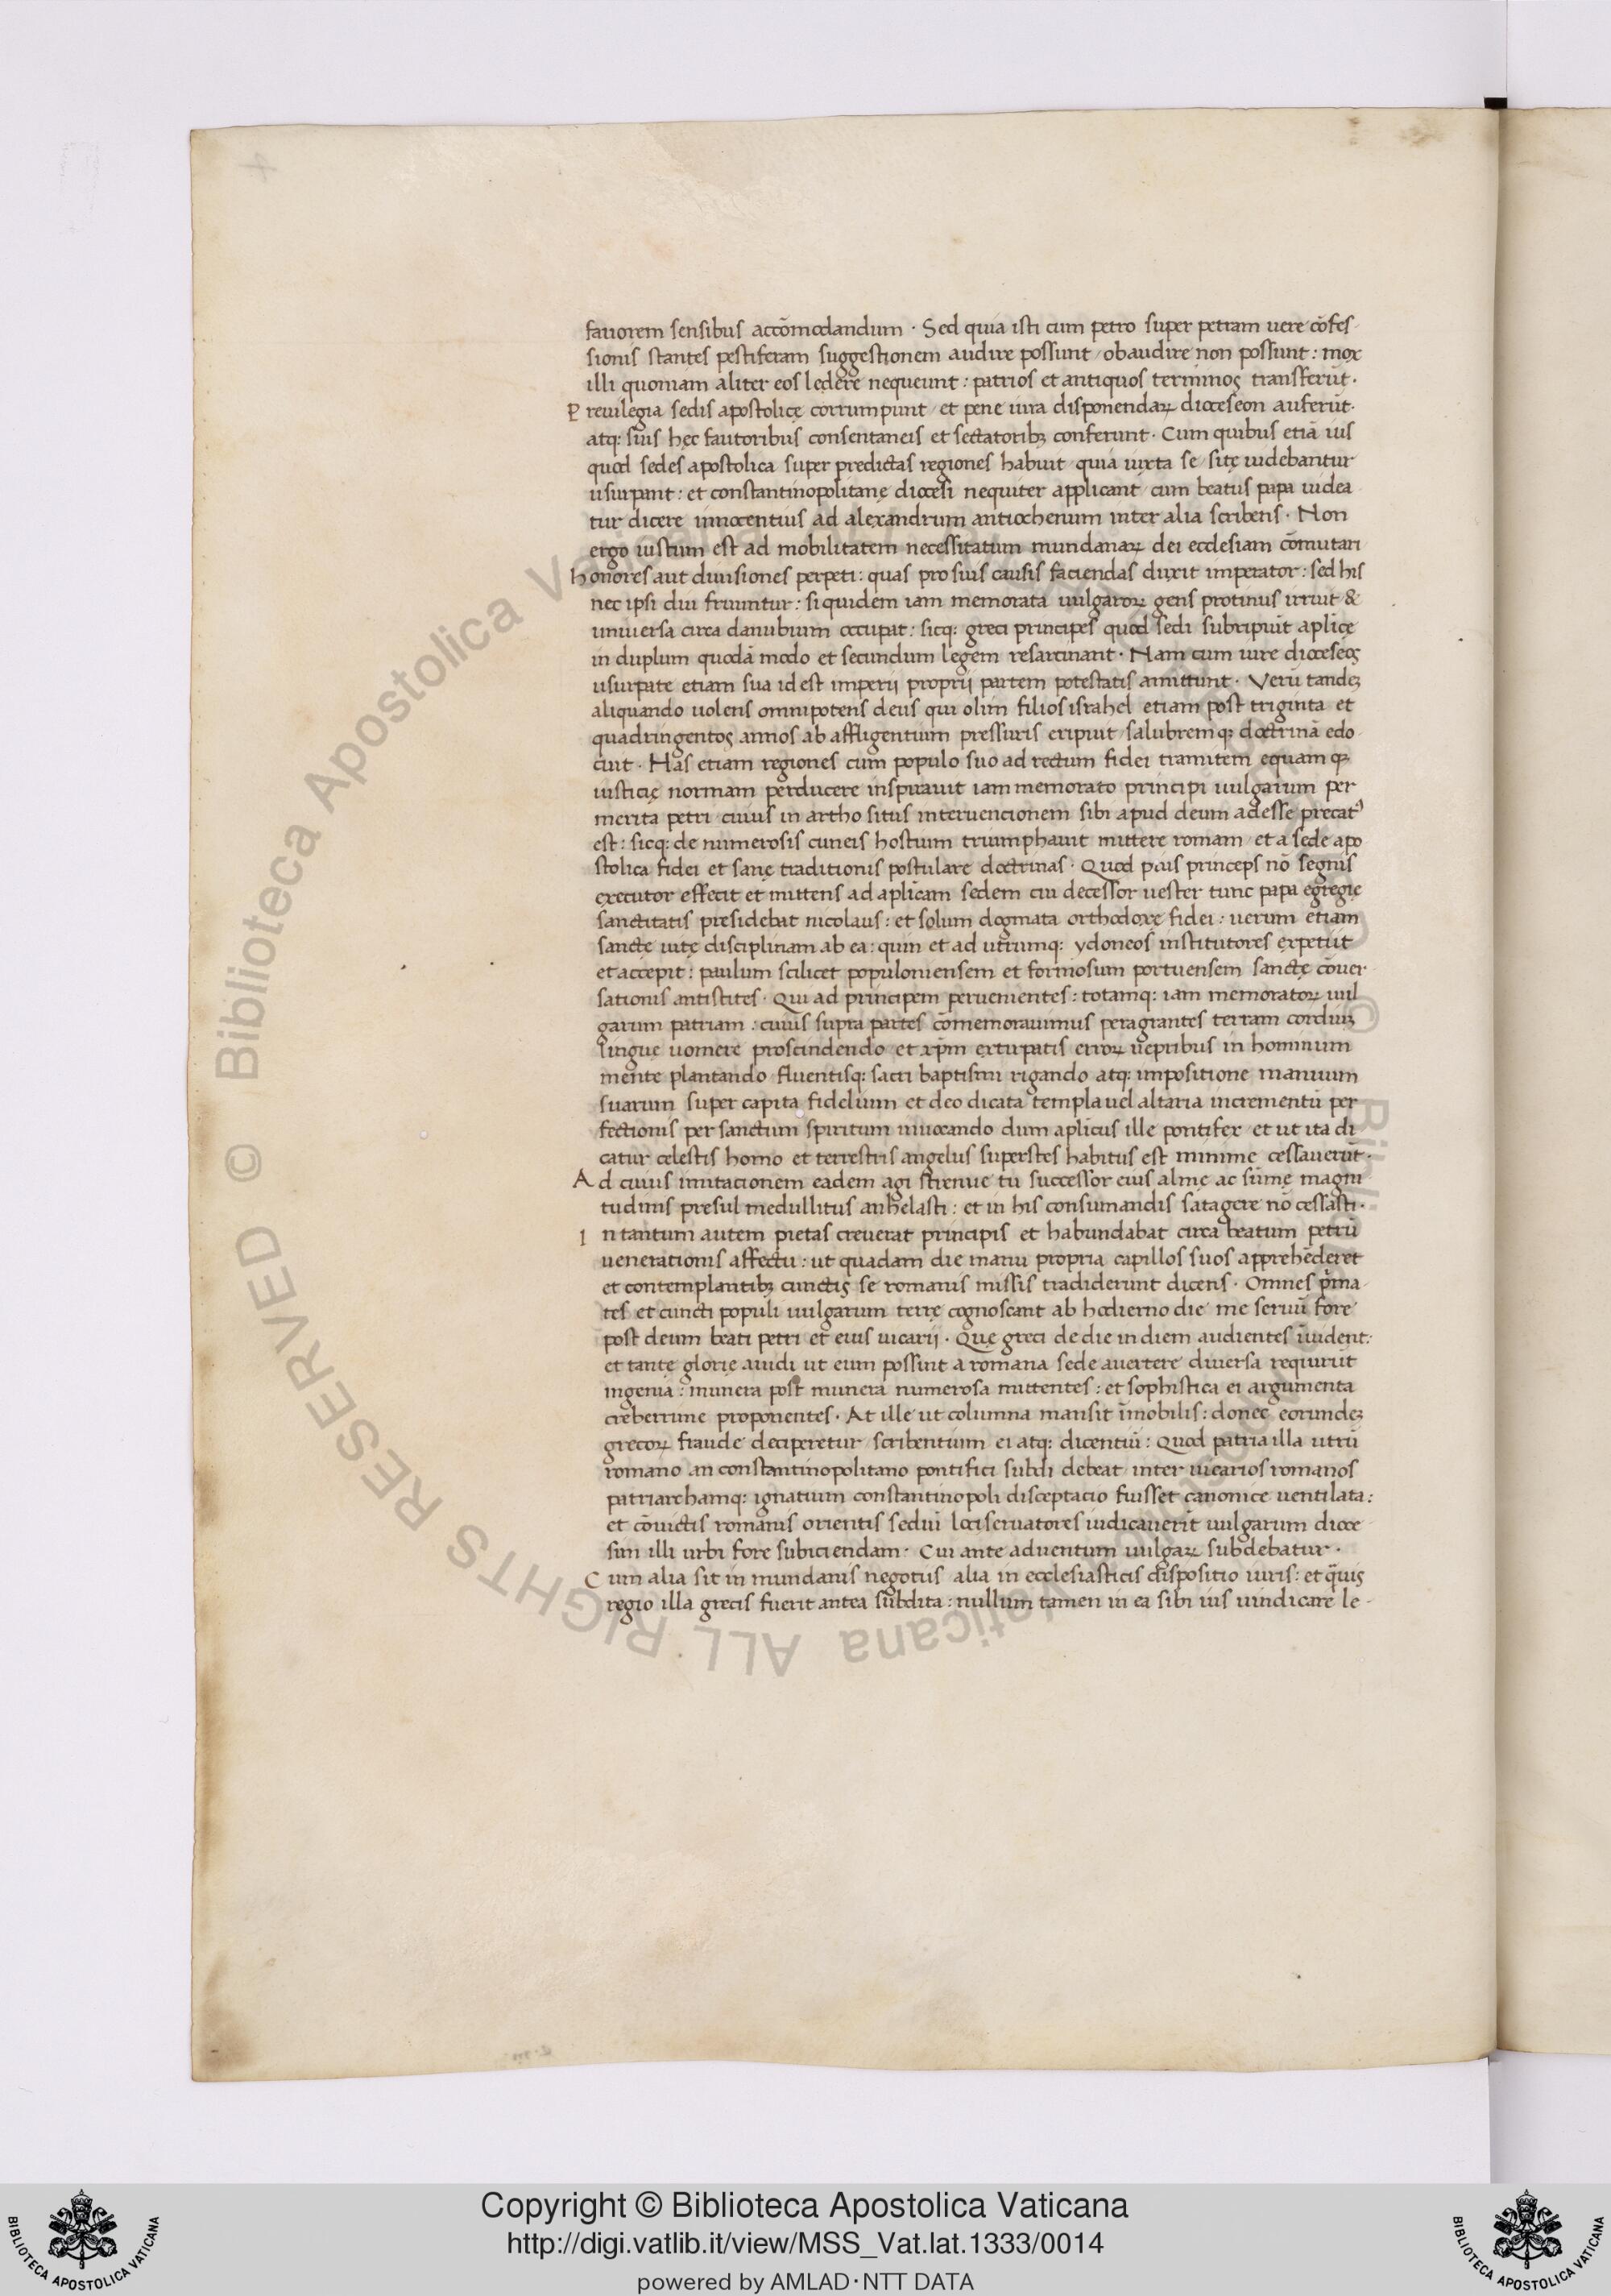 fauorem sensibus accõmodandum · Sed quia isti cum petro super petram uere cõfes-
sionis stantes pestiferam suggestionem audire possunt / obaudire non possunt : mox
illi quoniam aliter eos ledere nequeunt : patrios et antiquos terminos transferũt ·
Preuilegia sedis apostolicę corrumpunt / et pene iura disponendaꝝ dioceseon auferũt·
atq; suis hęc fautoribus consentaneis et sectatoribꝫ conferunt · Cum quibus etiã ius
quod sedes apostolica super predictas regiones habuit quia iuxta se sitę uidebantur
usurpant : et constantinopolitanę diocesi nequiter applicant / cum beatus papa uidea
tur dicere innocentius ad alexandrum antiochenum inter alia scribens · Non
ergo iustum est ad mobilitatem necessitatum mundanaꝝ dei ecclesiam cõmutari
honores aut diuisiones perpeti : quas pro suis causis faciendas duxit imperator : sed his
nec ipsi diu fruuntur : siquidem iam memorata uulgaroꝝ gens protinus irruit &
uniuersa circa danubium occupat : sicq; greci principes quod sedi subripuit aplicę
in duplum quodã modo et secundum legem resarcinant · Nam cum iure dioceseos
usurpate etiam sua id est imperij proprij partem potestatis amittunt · Verũ tandeꝫ
aliquando uolens omnipotens deus qui olim filios israhel etiam post triginta et
quadringentos annos ab affligentium pressuris eripuit / salubremqꝫ doctrinã edo
cuit · Has etiam regiones cum populo suo ad rectum fidei tramitem equamqꝫ
iusticię normam perducere inspirauit iam memorato principi uulgarum per
merita petri cuius in artho situs interuencionem sibi apud deum adesse precatꝰ
est : sicq; de numerosis cuneis hostium triumphauit mittere romam / et a sede apo
stolica fidei et sanę traditionis postulare doctrinas · Quod pius princeps nõ segnis
executor effecit et mittens ad aplicam sedem cui decessor uester tunc papa egregię
sanctitatis presidebat nicolaus : et solum dogmata orthodoxę fidei : uerum etiam
sanctę uitę disciplinam ab ea : quin et ad utrumq; ydoneos institutores expetiit
et accepit : paulum scilicet populoniensem et formosum portuensem sanctę cõuer
sationis antistites · Qui ad principem peruenientes : totamq; iam memoratoꝝ uul
garum patriam : cuius supra partes cõmemorauimus peragrantes terram cordiuꝫ
linguę uomere proscindendo et xp̃m extirpatis erroꝝ uepribus in hominum
mente plantando fluentisq; sacri baptismi rigando atq; impositione manuum
suarum super capita fidelium et deo dicata templa uel altaria incrementũ per
fectionis per sanctum spiritum inuocando dum aplicus ille pontifex et ut ita di
catur celestis homo et terrestris angelus superstes habitus est minime cessauerũt ·
Ad cuius imitacionem eadem agi strenue tu successor eius almę ac sũmę magni
tudinis presul medullitus anhelasti : et in his consumandis satagere nõ cessasti ·
In tantum autem pietas creuerat principis et habundabat circa beatum petrũ
uenerationis affectu : ut quadam die manu propria capillos suos apprehẽderet
et contemplantibꝫ cunctis se romanis missis tradiderunt dicens · Omnes p̃ma
tes et cuncti populi uulgarum terrę cognoscant ab hodierno die me seruũ fore
post deum beati petri et eius uicarij · Quę greci de die in diem audientes ĩuident :
et tantę glorię auidi ut eum possint a romana sede auertere diuersa requirũt
ingenia : munera post munera numerosa mittentes : et sophistica ei argumenta
creberrime proponentes · At ille ut columna mansit ĩmobilis : donec eorundeꝫ
grecoꝝ fraude deciperetur scribentium ei atq; dicentiũ : Quod patria illa utrũ
romano an constantinopolitano pontifici subdi debeat / inter uicarios romanos
patriarchamq; ignatium constantinopoli disceptacio fuisset canonice uentilata :
et cõuictis romanis orientis sediũ loci seruatores iudicauerĩt uulgarum dioce
sim illi urbi fore subiciendam · Cui ante aduentum uulgaꝝ subdebatur ·
Cum alia sit in mundanis negotiis alia in ecclesiasticis dispositio iuris : et q̃uis
regio illa grecis fuerit antea subdita : nullum tamen in ea sibi ius uindicare le-
© Biblioteca Apostolica Vaticana ALL RIGHTS RESERVED
Copyright © Biblioteca Apostolica Vaticana
http://digi.vatlib.it/view/MSS_Vat.lat.1333/0014
powered by AMLAD·NTT DATA
BIBLIOTECA APOSTOLICA VATICANA
BIBLIOTECA APOSTOLICA VATICANA